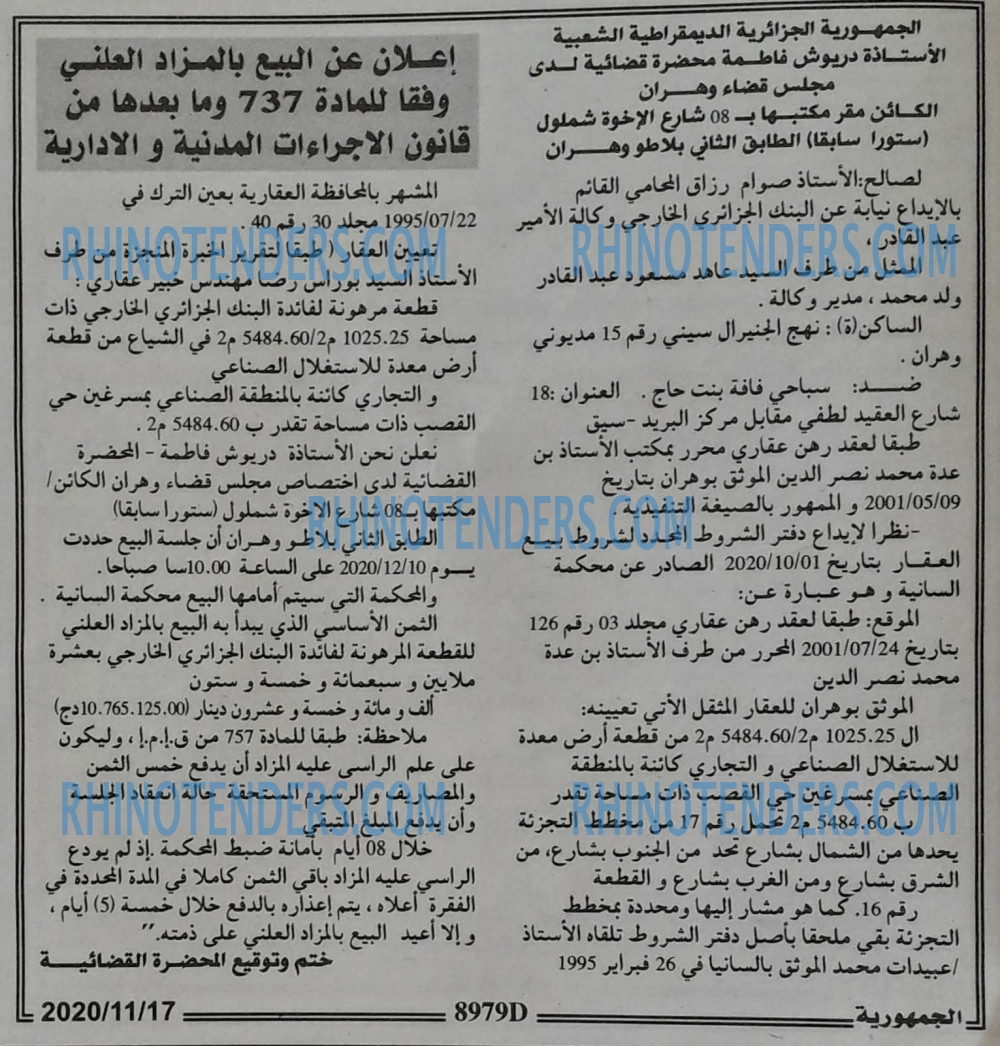 الجمهورية الجزائرية الديمقراطية الشعبية
الأستاذة دريوش فاطمة محضرة قضائية لدى
مجلس قضاء وهران
الكائن مقر مكتبها بـ 08 شارع الإخوة شملول
(ستورا سابقا) الطابق الثاني بلاطو وهران
لصالح:الأستاذ صوام رزاق المحامي القائم
بالإيداع نيابة عن البنك الجزائري الخارجي وكالة الأمير
عبد القادر ،
الممثل من طرف السيد عاهد مسعود عبد القادر
ولد محمد ، مدير وكالة .
الساكن(ة) : نهج الجنيرال سيني رقم 15 مديوني
وهران .
ضد: سباحي فافة بنت حاج . العنوان :18
شارع العقيد لطفي مقابل مركز البريد -سيق
طبقا لعقد رهن عقاري محرر بمكتب الأستاذ بن
عدة محمد نصر الدين الموثق بوهران بتاريخ
2001/05/09 و الممهور بالصيغة التنفيذية
-نظرا لإيداع دفتر الشروط المحدد لشروط بيع
العقار بتاريخ 2020/10/01 الصادر عن محكمة
السانية و هو عبارة عن:
الموقع: طبقا لعقد رهن عقاري مجلد 03 رقم 126
بتاريخ 2001/07/24 المحرر من طرف الأستاذ بن عدة
محمد نصر الدين
الموثق بوهران للعقار المثقل الأتي تعيينه:
ال 1025.25 م2/5484.60 م2 من قطعة أرض معدة
للاستغلال الصناعي و التجاري كائنة بالمنطقة
الصناعي بمسرغين حي القصب ذات مساحة تقدر
ب 5484.60 م2 تحمل رقم 17 من مخطط التجزئة
يحدها من الشمال بشارع تحد من الجنوب بشارع، من
الشرق بشارع ومن الغرب بشارع و القطعة
رقم 16. كما هو مشار إليها ومحددة بمخطط
التجزئة بقي ملحقا بأصل دفتر الشروط تلقاه الأستاذ
/عبيدات محمد الموثق بالسانيا في 26 فبراير 1995
إعلان عن البيع بالمزاد العلني
وفقا للمادة 737 وما بعدها من
قانون الاجراءات المدنية و الادارية
المشهر بالمحافظة العقارية بعين الترك في
1995/07/22 مجلد 30 رقم 40 .
تعيين العقار ( طبقا لتقرير الخبرة المنجزة من طرف
الأستاذ السيد بوراس رضا مهندس خبير عقاري :
قطعة مرهونة لفائدة البنك الجزائري الخارجي ذات
مساحة 1025.25 م2/5484.60 م2 في الشياع من قطعة
أرض معدة للاستغلال الصناعي
و التجاري كائنة بالمنطقة الصناعي بمسرغين حي
القصب ذات مساحة تقدر ب 5484.60 م2 .
نعلن نحن الأستاذة دريوش فاطمة - المحضرة
القضائية لدى اختصاص مجلس قضاء وهران الكائن/
مكتبها بـ08 شارع الاخوة شملول (ستورا سابقا)
الطابق الثاني بلاطو وهران أن جلسة البيع حددت
يوم 2020/12/10 على الساعة 10.00سا صباحا.
والمحكمة التي سيتم أمامها البيع محكمة السانية .
الثمن الأساسي الذي يبدأ به البيع بالمزاد العلني
للقطعة المرهونة لفائدة البنك الجزائري الخارجي بعشرة
ملايين و سبعمائة و خمسة و ستون
ألف و مائة و خمسة و عشرون دينار (10.765.125.00دج)
ملاحظة: طبقا للمادة 757 من ق.إ.م.إ ، وليكون
على علم الراسى عليه المزاد أن يدفع خمس الثمن
والمصاريف و الرسوم المستحقة حالة انعقاد الجلسة
وأن يدفع المبلغ المتبقي
خلال 08 أيام بأمانة ضبط المحكمة .إذ لم يودع
الراسي عليه المزاد باقي الثمن كاملا في المدة المحددة في
الفقرة أعلاه ، يتم إعذاره بالدفع خلال خمسة (5) أيام ،
و إلا أعيد البيع بالمزاد العلني على ذمته.”
ختم وتوقيع المحضرة القضائية
الجمهورية 8979D 2020/11/17
RHINOTENDERS.COM
RHINOTENDERS.COM
RHINOTENDERS.COM
RHINOTENDERS.COM
RHINOTENDERS.COM